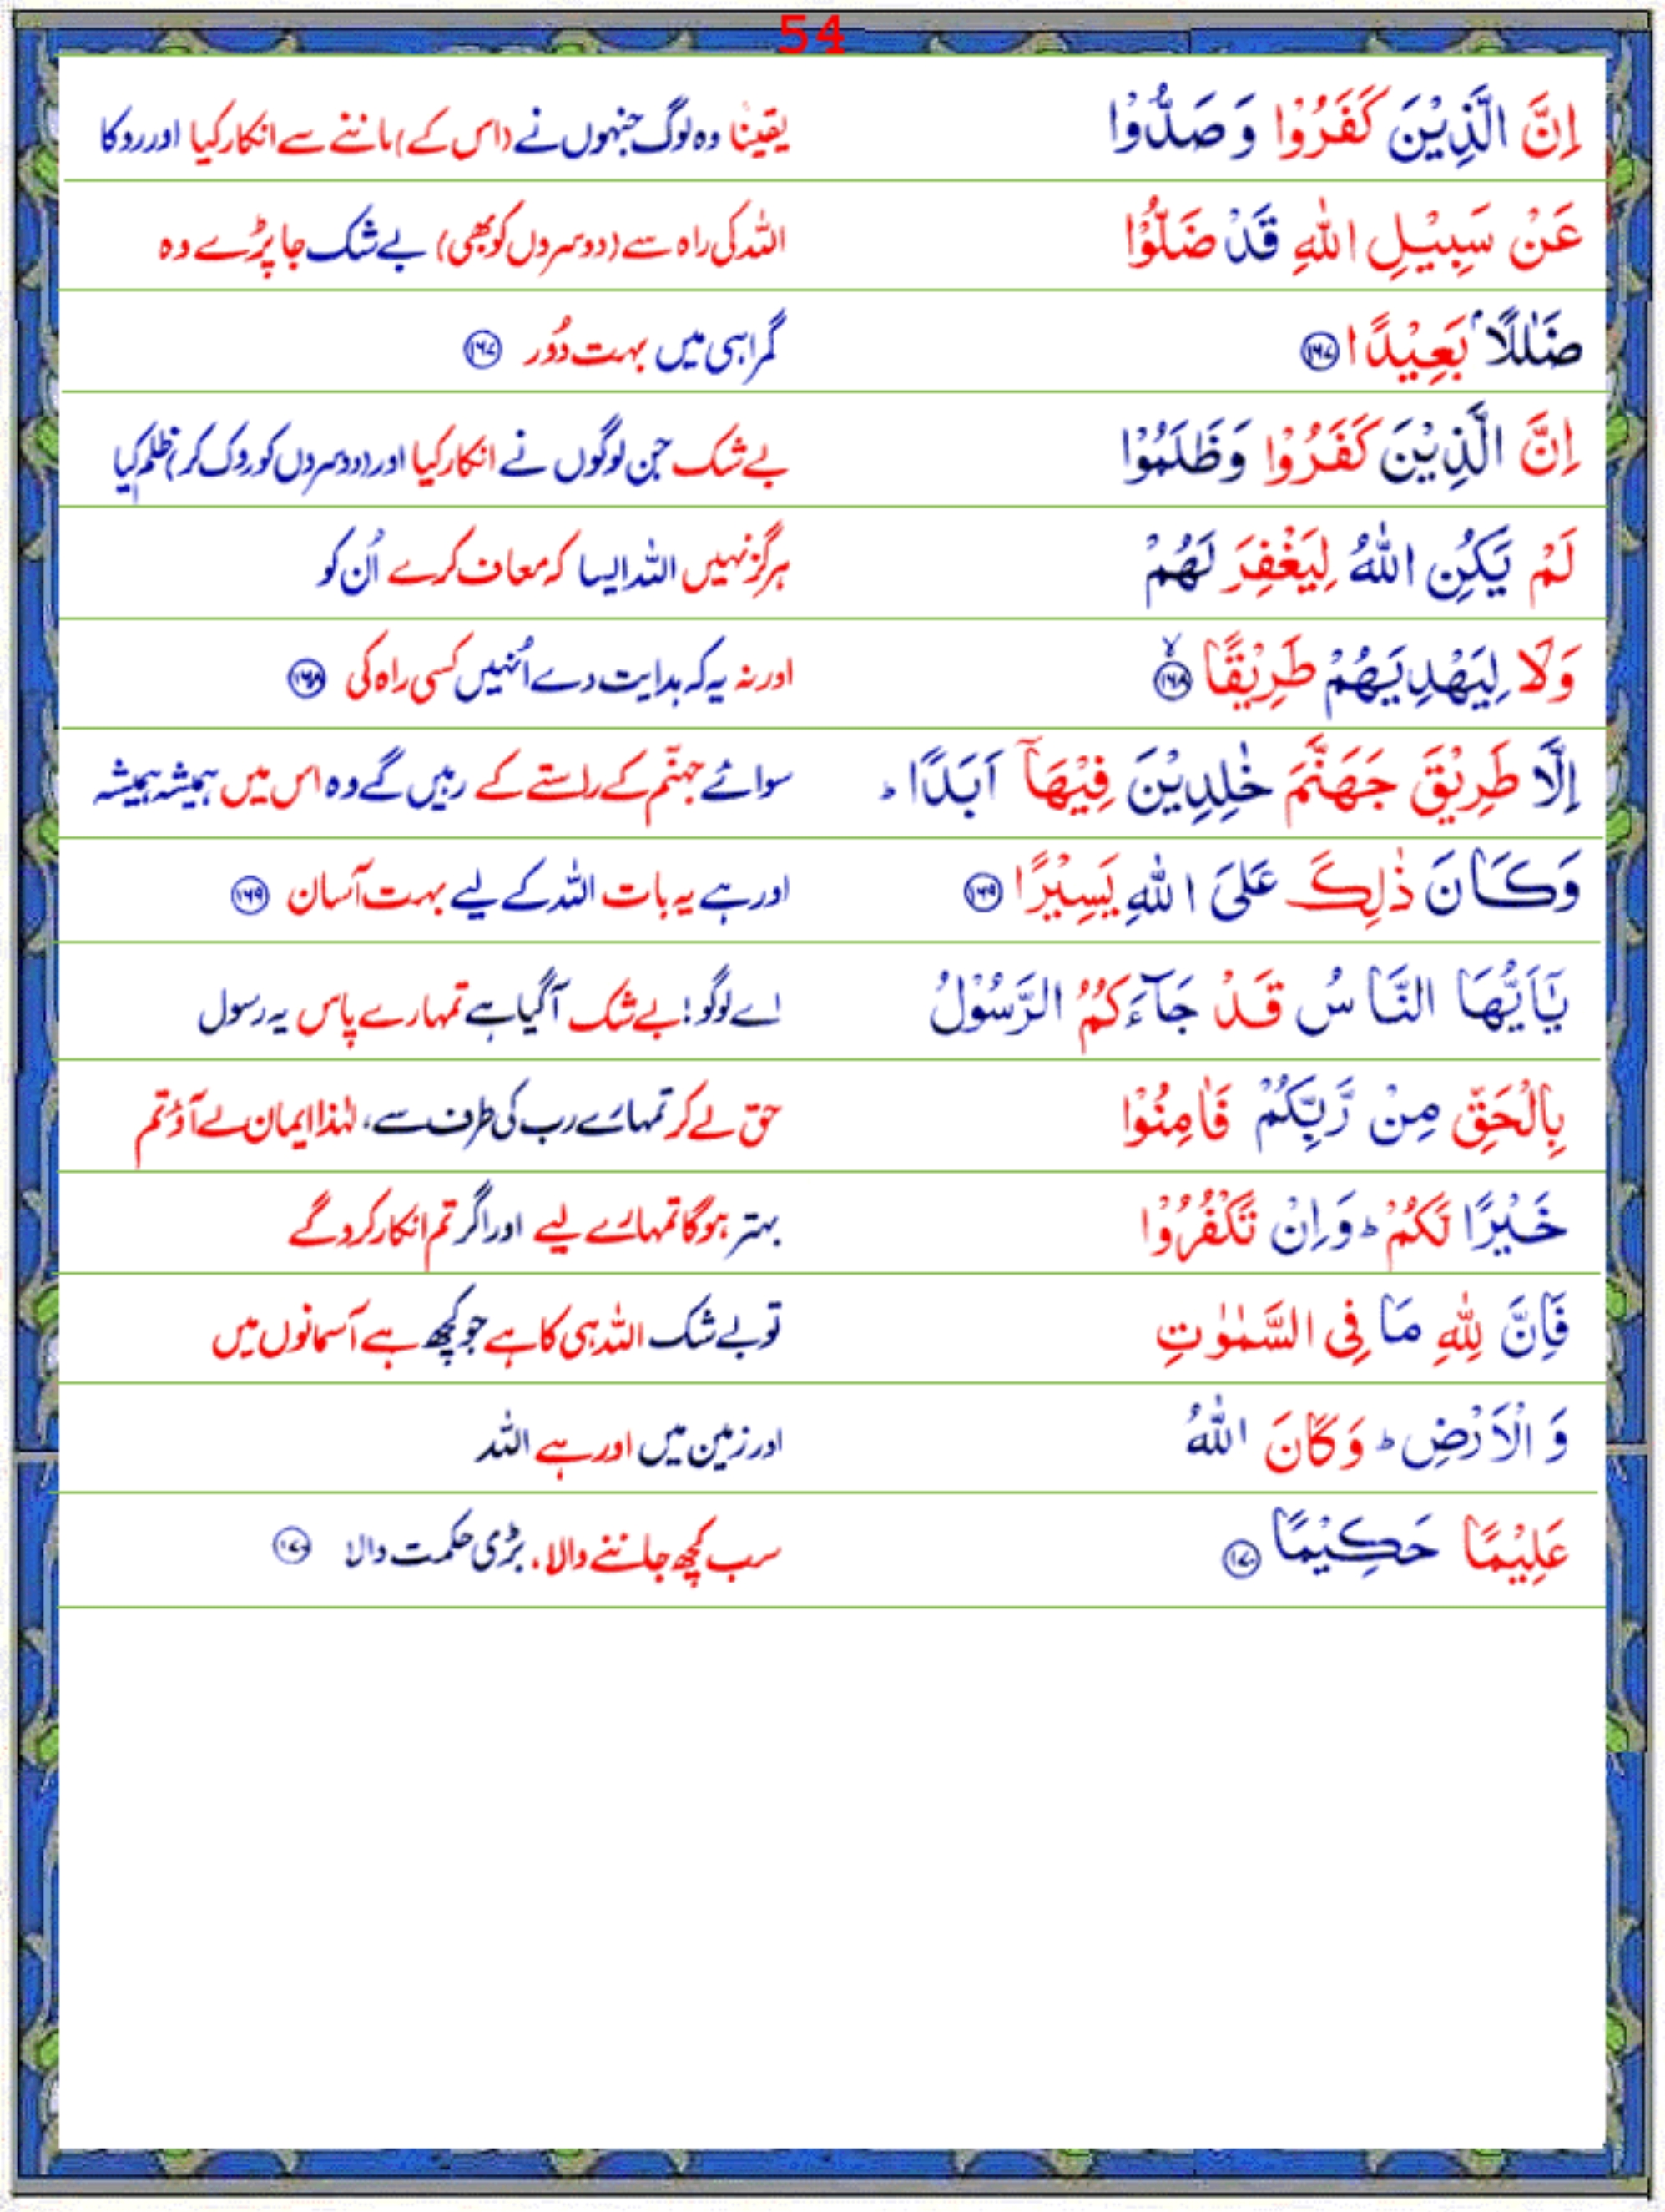 54
اِنَّ الَّذِيْنَ كَفَرُوْا وَ صَدُّوْا یقیناً وہ لوگ جنہوں نے (اس کے) ماننے سے انکار کیا اور روکا
عَنْ سَبِيْلِ اللّٰهِ قَدْ ضَلُّوْا اللہ کی راہ سے (دوسروں کو بھی) بے شک جا پڑے وہ
ضَلٰلًاۢ بَعِيْدًا ۝۱۶۷ گمراہی میں بہت دُور ۝۱۶۷
اِنَّ الَّذِيْنَ كَفَرُوْا وَظَلَمُوْا بے شک جن لوگوں نے انکار کیا اور (دوسروں کو روک کر) ظلم کیا
لَمْ يَكُنِ اللّٰهُ لِيَغْفِرَ لَهُمْ ہرگز نہیں اللہ ایسا کہ معاف کرے اُن کو
وَلَا لِيَهْدِيَهُمْ طَرِيْقًا ۝۱۶۸ۙ اور نہ یہ کہ ہدایت دے اُنہیں کسی راہ کی ۝۱۶۸
اِلَّا طَرِيْقَ جَهَنَّمَ خٰلِدِيْنَ فِيْهَاۤ اَبَدًا ؕ سوائے جہنّم کے راستے کے رہیں گے وہ اس میں ہمیشہ ہمیشہ
وَكَانَ ذٰلِكَ عَلَى اللّٰهِ يَسِيْرًا ۝۱۶۹ اور ہے یہ بات اللہ کے لیے بہت آسان ۝۱۶۹
يٰۤاَيُّهَا النَّاسُ قَدْ جَآءَكُمُ الرَّسُوْلُ اے لوگو! بے شک آگیا ہے تمہارے پاس یہ رسول
بِالْحَقِّ مِنْ رَّبِّكُمْ فَاٰمِنُوْا حق لے کر تمہارے رب کی طرف سے، لہٰذا ایمان لے آؤ تم
خَيْرًا لَّكُمْ ؕ وَاِنْ تَكْفُرُوْا بہتر ہوگا تمہارے لیے اور اگر تم انکار کرو گے
فَاِنَّ لِلّٰهِ مَا فِى السَّمٰوٰتِ تو بے شک اللہ ہی کا ہے جو کچھ ہے آسمانوں میں
وَ الْاَرْضِ ؕ وَكَانَ اللّٰهُ اور زمین میں اور ہے اللہ
عَلِيْمًا حَكِيْمًا ۝۱۷۰ سب کچھ جاننے والا، بڑی حکمت والا ۝۱۷۰